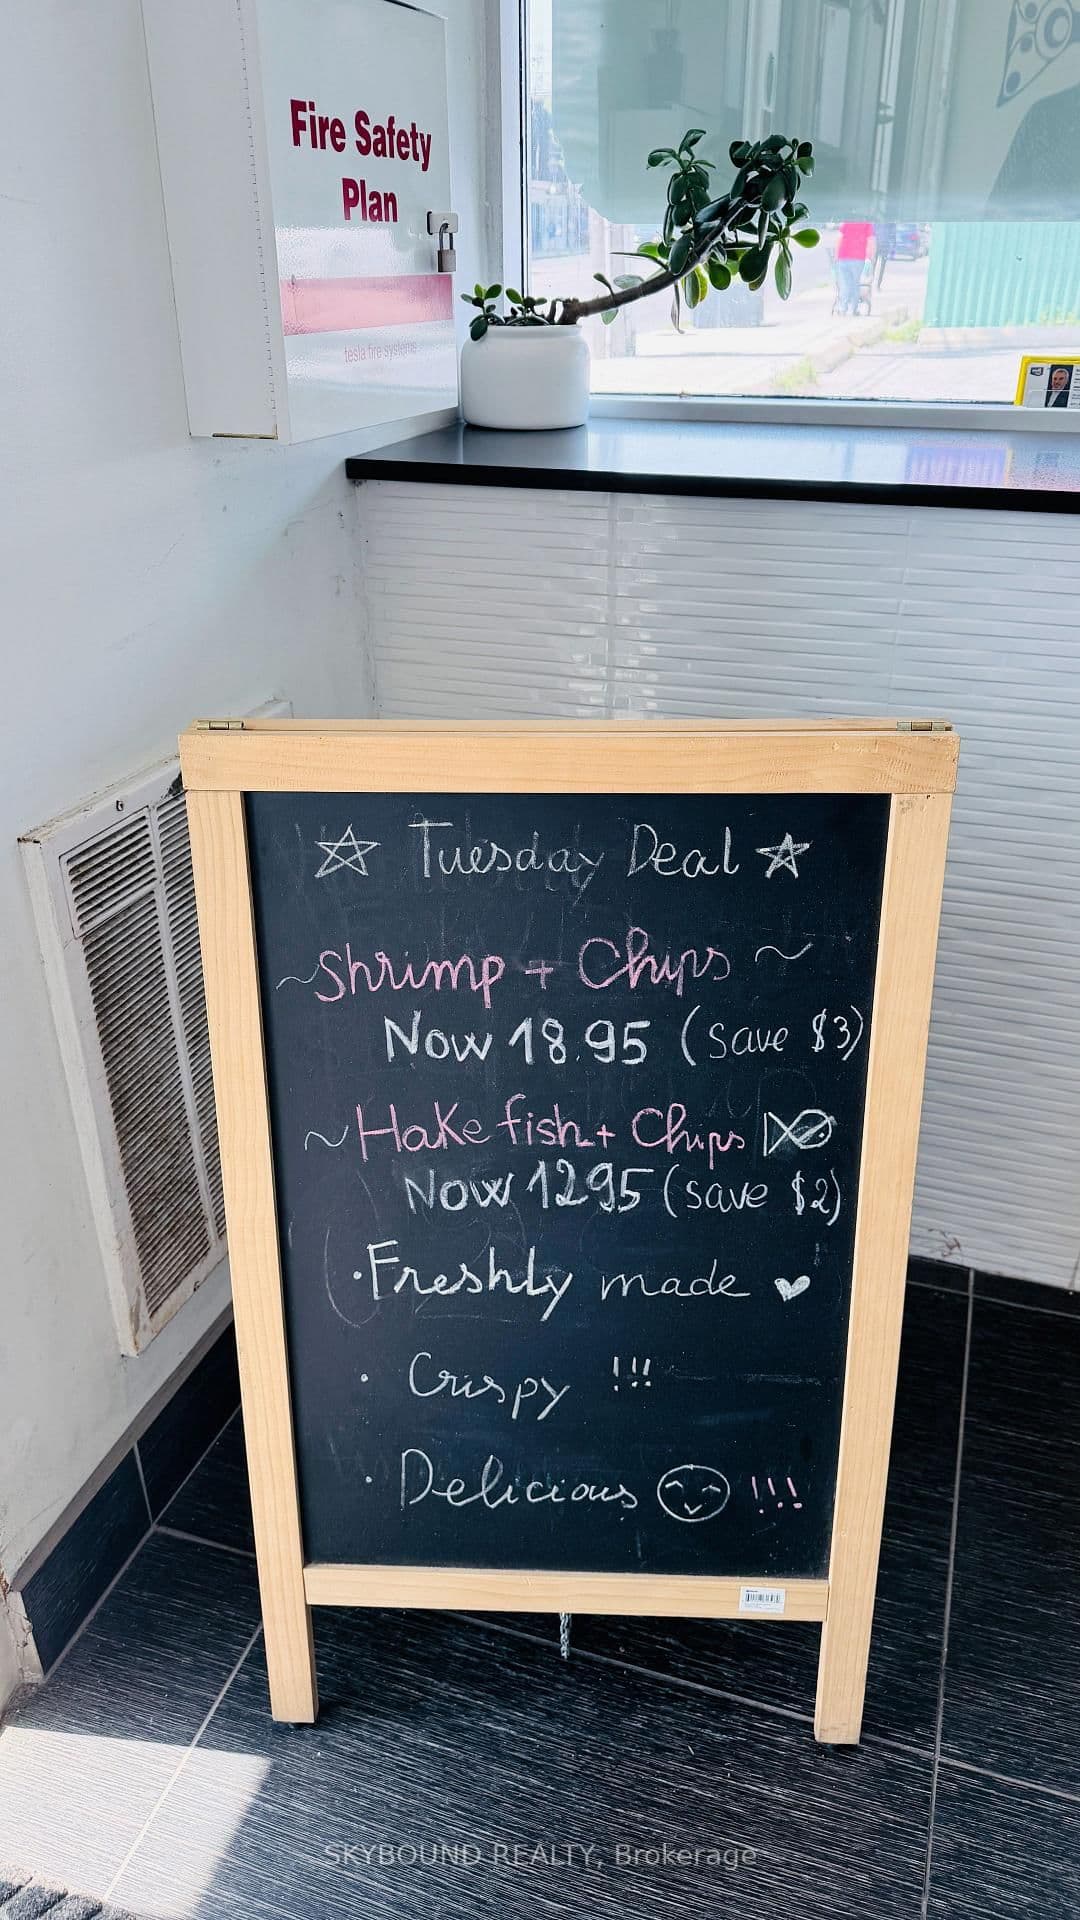 Fire Safety
Plan
tesla fire systems
Tuesday Deal
Shrimp + Chips
Now 18.95 (save $3)
Hake fish + Chips
Now 1295 (save $2)
• Freshly made
• Crispy !!!
• Delicious !!!
SKYBOUND REALTY, Brokerage